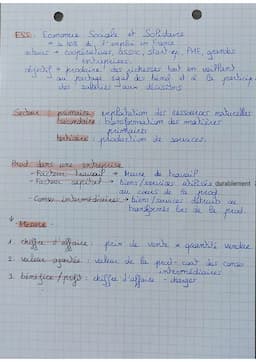 ESS : Economie Sociale et Solidaire
→ 10% de l'emploi en France
acteurs → coopératives, assoc, start-up, PME, grandes
entreprises.
objectif → produire des richesses tout en veillant
au partage égal des bénéf et à la particip
des salariés → aux décisions
Secteur primaire : exploitation des ressources naturelles
secondaire : transformation des matières
primaires
tertiaire : production de services.
Prod dans une entreprise
- Facteur travail → heure de travail
- Facteur capital → biens/services utilisés durablement
au cours de la prod.
- Conso intermédiaires → biens/services détruits ou
transformés lors de la prod.
Mesure
1. chiffre d'affaire : prix de vente x quantité vendue
2. valeur ajoutée : valeur de la prod - coût des conso
intermédiaires
3. bénéfice/profit : chiffre d'affaire - charges